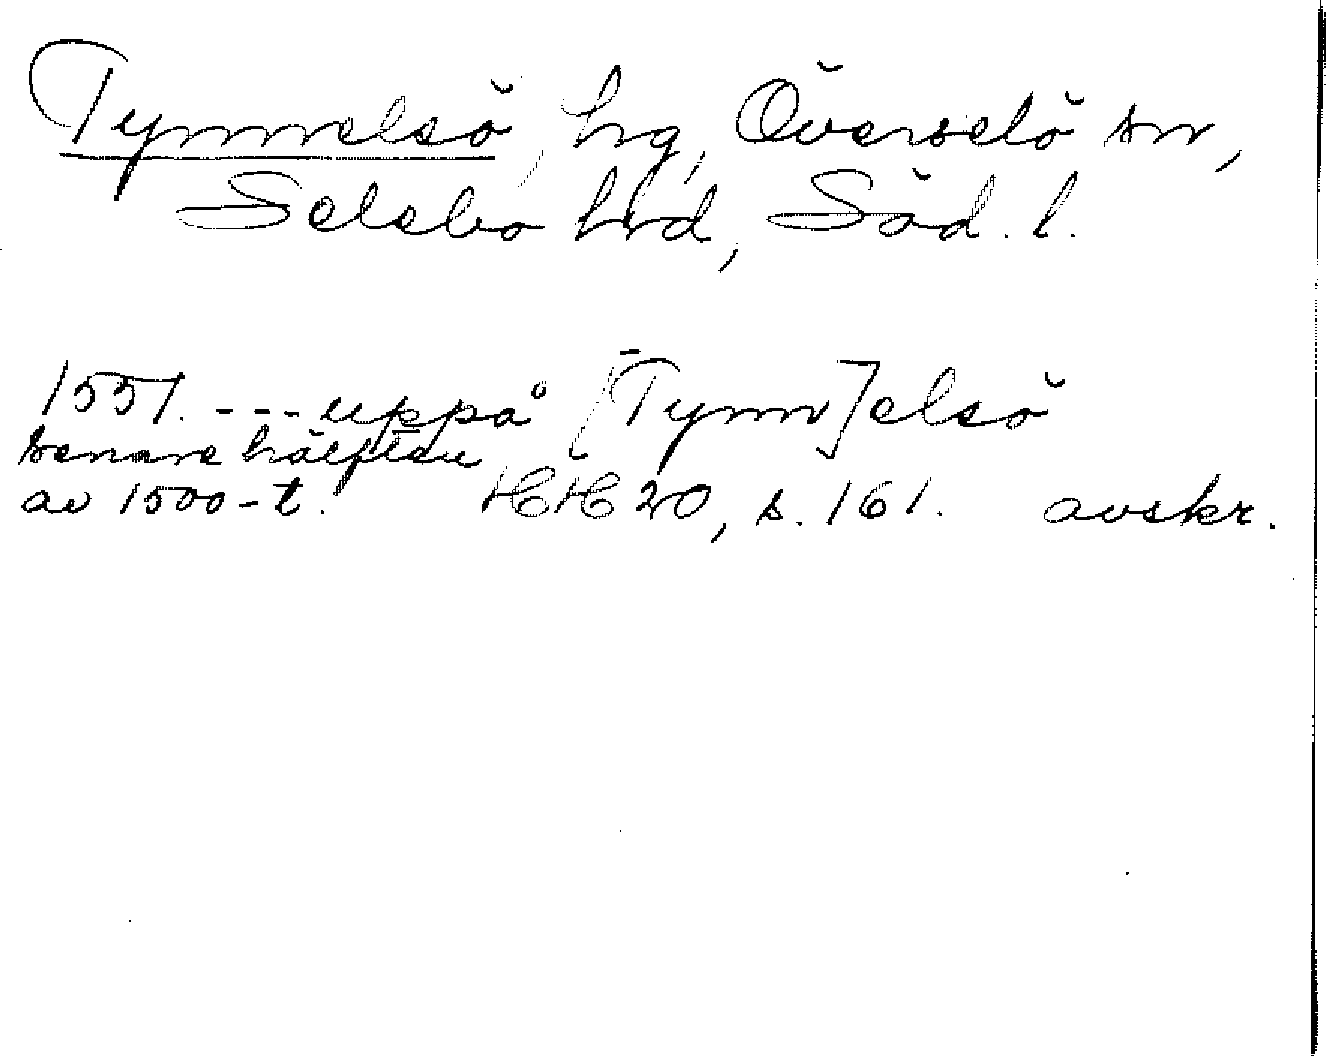 Tynnelsö, hg, Överselö sn,
Selebo hrd, Söd. l.
1551. --- uppå [Tynn]elsö
senare hälften
av 1500-t. HH 20, s. 161. avskr.